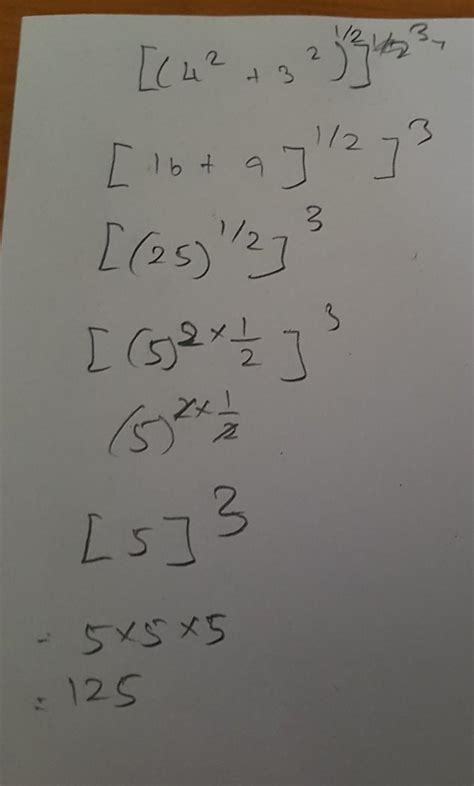 [(4² + 3²)^1/2]^3
[16 + 9]^1/2]^3
[(25)^1/2]^3
[(5)^2×1/2]^3
(5)^2×1/2
[5]^3
= 5×5×5
= 125